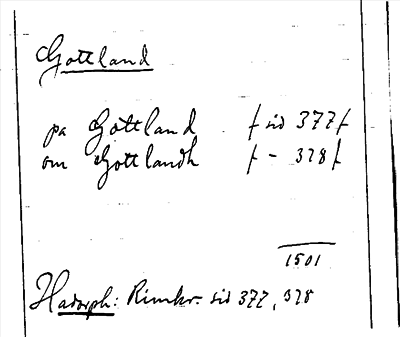 Gottland
pa Gottland f sid 377 f
om Gottlandh f - 378 f
1501
Hadorph: Rimkr. sid 377, 378